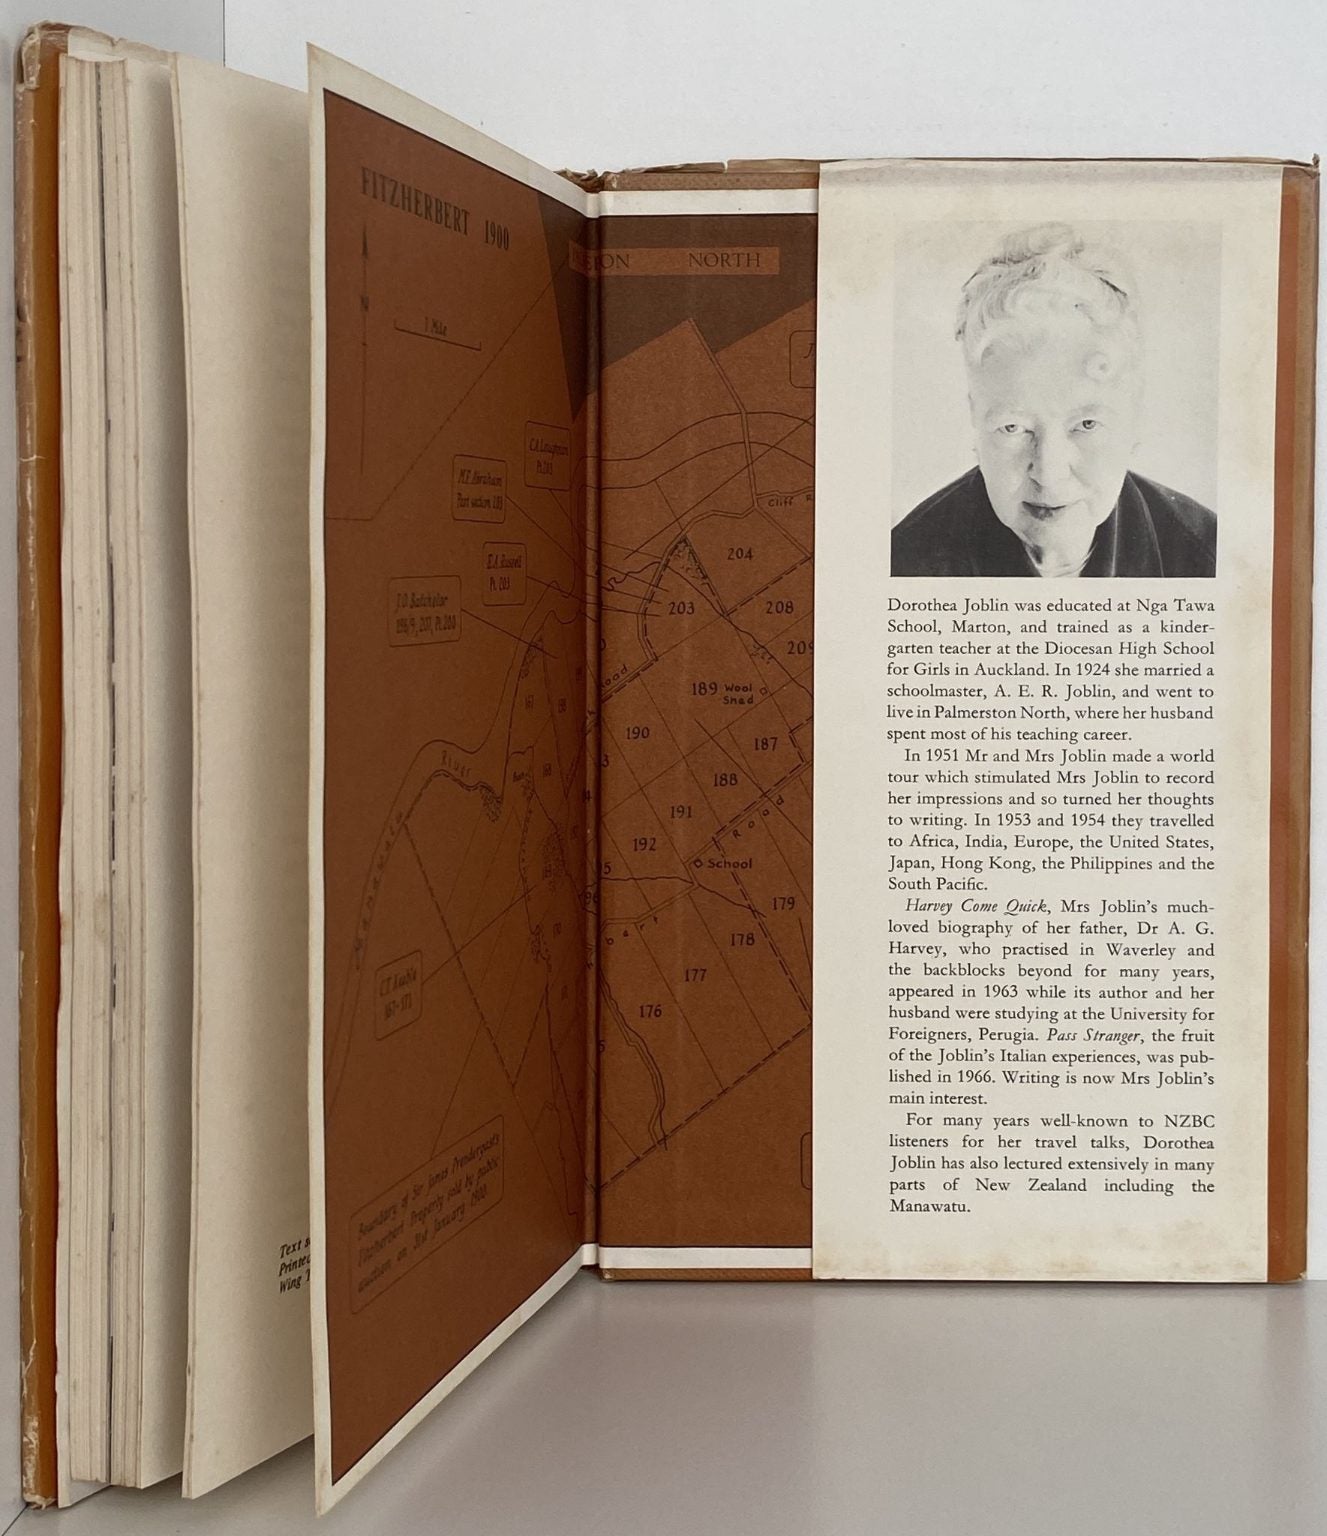 FITZHERBERT 1900
N
1 Mile
C.A. Loughnan
Pt. 203
M.F. Abraham
Part section 203
E.A. Russell
Pt. 203
J.O. Batchelor
198/9, 207, Pt. 200
River
Manawatu
Bush
167
168
170
Boundary of Sir James Prendergast's
Fitzherbert Property sold by public
auction on 31st January 1900.
Text
Printed
Wing
NORTH
Cliff R
204
203
208
209
oad
189 Wool
Shed
190
187
188
191
Road
192
School
179
178
177
176
Dorothea Joblin was educated at Nga Tawa
School, Marton, and trained as a kinder-
garten teacher at the Diocesan High School
for Girls in Auckland. In 1924 she married a
schoolmaster, A. E. R. Joblin, and went to
live in Palmerston North, where her husband
spent most of his teaching career.
In 1951 Mr and Mrs Joblin made a world
tour which stimulated Mrs Joblin to record
her impressions and so turned her thoughts
to writing. In 1953 and 1954 they travelled
to Africa, India, Europe, the United States,
Japan, Hong Kong, the Philippines and the
South Pacific.
Harvey Come Quick, Mrs Joblin's much-
loved biography of her father, Dr A. G.
Harvey, who practised in Waverley and
the backblocks beyond for many years,
appeared in 1963 while its author and her
husband were studying at the University for
Foreigners, Perugia. Pass Stranger, the fruit
of the Joblin's Italian experiences, was pub-
lished in 1966. Writing is now Mrs Joblin's
main interest.
For many years well-known to NZBC
listeners for her travel talks, Dorothea
Joblin has also lectured extensively in many
parts of New Zealand including the
Manawatu.